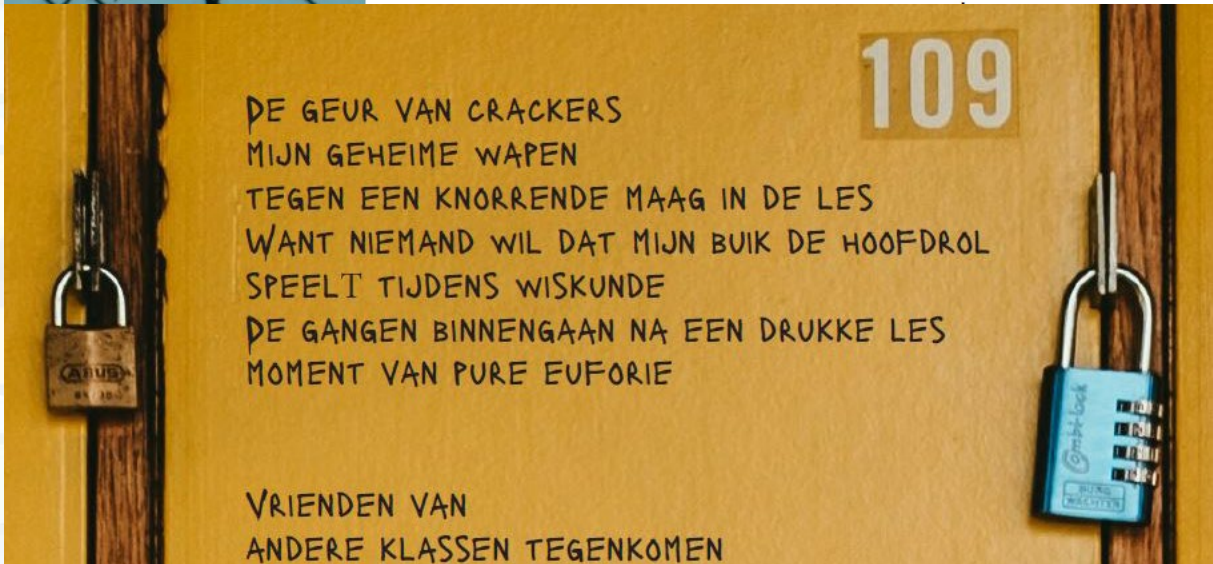 109
DE GEUR VAN CRACKERS
MIJN GEHEIME WAPEN
TEGEN EEN KNORRENDE MAAG IN DE LES
WANT NIEMAND WIL DAT MIJN BUIK DE HOOFDROL
SPEELT TIJDENS WISKUNDE
DE GANGEN BINNENGAAN NA EEN DRUKKE LES
MOMENT VAN PURE EUFORIE
VRIENDEN VAN
ANDERE KLASSEN TEGENKOMEN
ABUS
Combi-lock
BURG
WÄCHTER